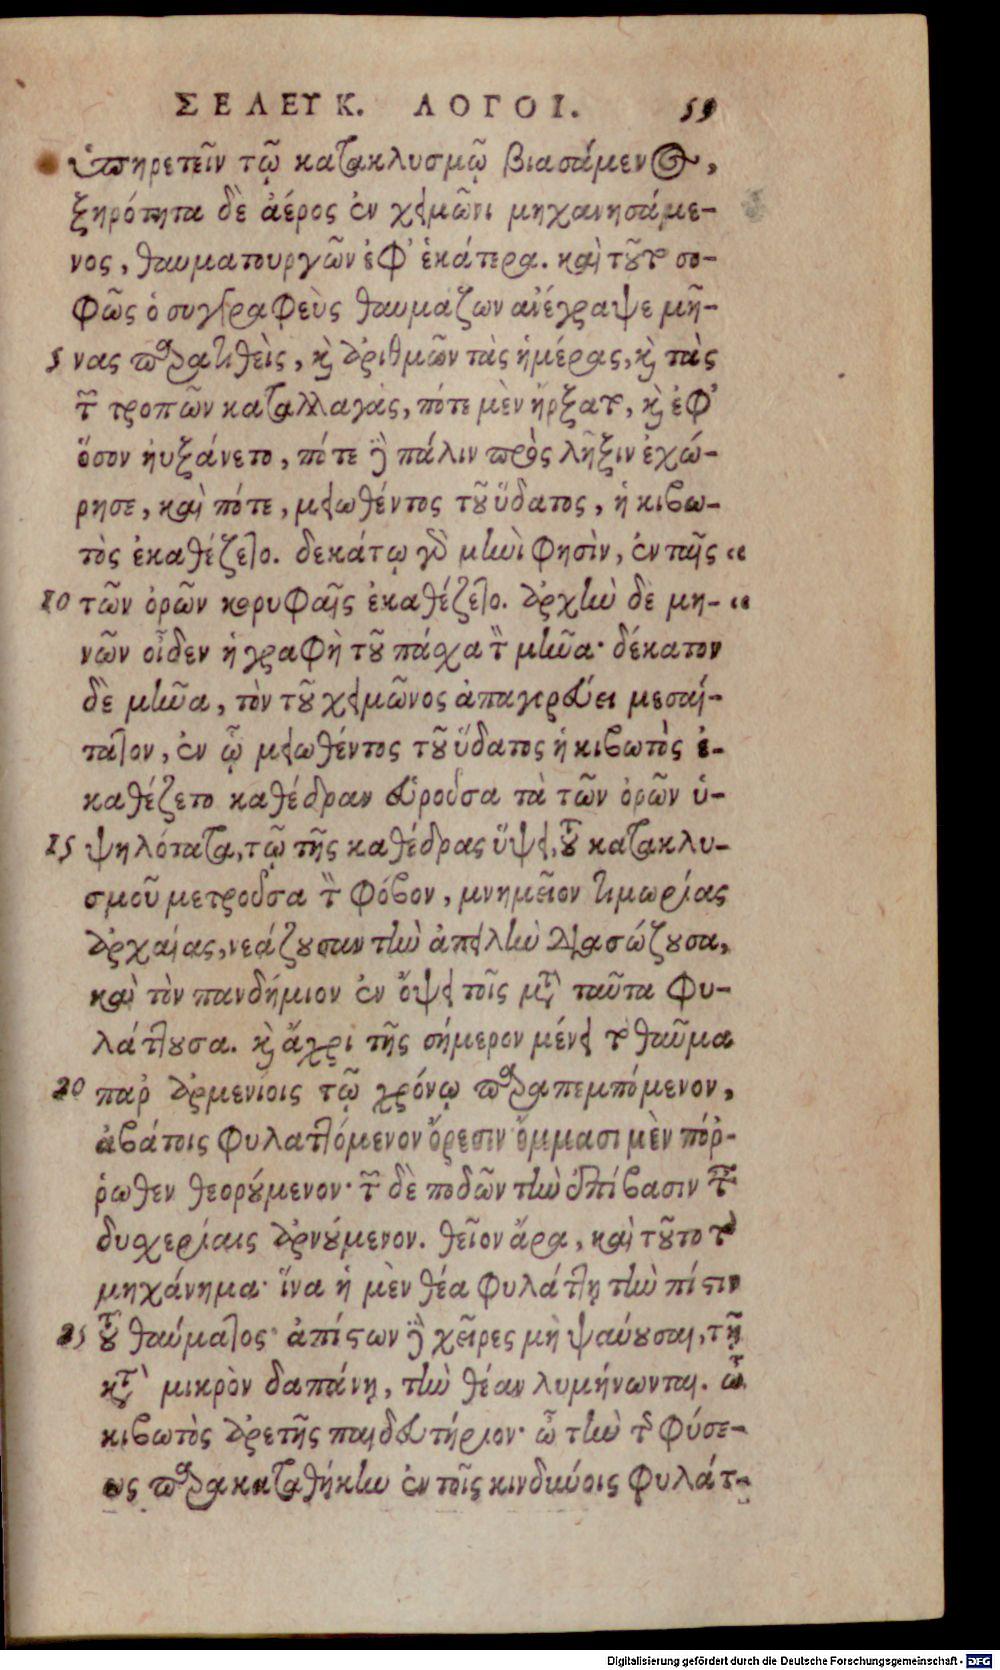 ΣΕΛΕΥΚ. ΛΟΓΟΙ. 59
ὑπηρετεῖν τῷ κατακλυσμῷ βιασάμενος,
ξηρότητα δὲ ἀέρος ἐν χειμῶνι μηχανησάμε-
νος, θαυματουργῶν ἐφ' ἑκάτερα. καὶ τοῦτο σο-
φῶς ὁ συγγραφεὺς θαυμάζων ἀνέγραψε μῆ-
5 νας παρατιθεὶς, καὶ ἀριθμῶν τὰς ἡμέρας, καὶ τὰς
τῶν τροπῶν καταλλαγὰς, πότε μὲν ἤρξατο, καὶ ἐφ'
ὅσον ηὐξάνετο, πότε δὲ πάλιν πρὸς λῆξιν ἐχώ-
ρησε, καὶ πότε, μειωθέντος τοῦ ὕδατος, ἡ κιβω-
τὸς ἐκαθέζετο. δεκάτῳ γὰρ μηνὶ φησὶν, ἐν ταῖς "
10 τῶν ὀρῶν κορυφαῖς ἐκαθέζετο. ἀρχὴν δὲ μη- "
νῶν οἶδεν ἡ γραφὴ τοῦ πάσχα τὸν μῆνα· δέκατον
δὲ μῆνα, τὸν τοῦ χειμῶνος ἀπαγορεύει μεσαί-
τατον, ἐν ᾧ μειωθέντος τοῦ ὕδατος ἡ κιβωτὸς ἐ-
καθέζετο καθέδραν εὑροῦσα τὰ τῶν ὀρῶν ὑ-
15 ψηλότατα, τῷ τῆς καθέδρας ὕψει, τοῦ κατακλυ-
σμοῦ μετροῦσα τὸν φόβον, μνημεῖον τιμωρίας
ἀρχαίας, νεάζουσαν τὴν ἀπειλὴν διασώζουσα,
καὶ τὸν πανδήμιον ἐν ὄψει τοῖς μετὰ ταῦτα φυ-
λάττουσα. καὶ ἄχρι τῆς σήμερον μένει τὸ θαῦμα
20 παρ' ἀρμενίοις τῷ χρόνῳ παραπεμπόμενον,
ἀβάτοις φυλαττόμενον ὄρεσιν ὄμμασι μὲν πόρ-
ρωθεν θεορούμενον· τῶν δὲ ποδῶν τὴν ἐπίβασιν ταῖς
δυχερίαις ἀρνούμενον. θεῖον ἄρα, καὶ τοῦτο τὸ
μηχάνημα· ἵνα ἡ μὲν θέα φυλάττῃ τὴν πίστιν
25 τοῦ θαύματος· ἀπίστων δὲ χεῖρες μὴ ψαύουσαι, τῇ
κατὰ μικρὸν δαπάνῃ, τὴν θέαν λυμήνωνται. ὦ
κιβωτὸς ἀρετῆς παιδευτήριον· ὦ τὴν τῆς φύσε-
ως παρακαταθήκην ἐν τοῖς κινδύνοις φυλάτ-
Digitalisierung gefördert durch die Deutsche Forschungsgemeinschaft - DFG